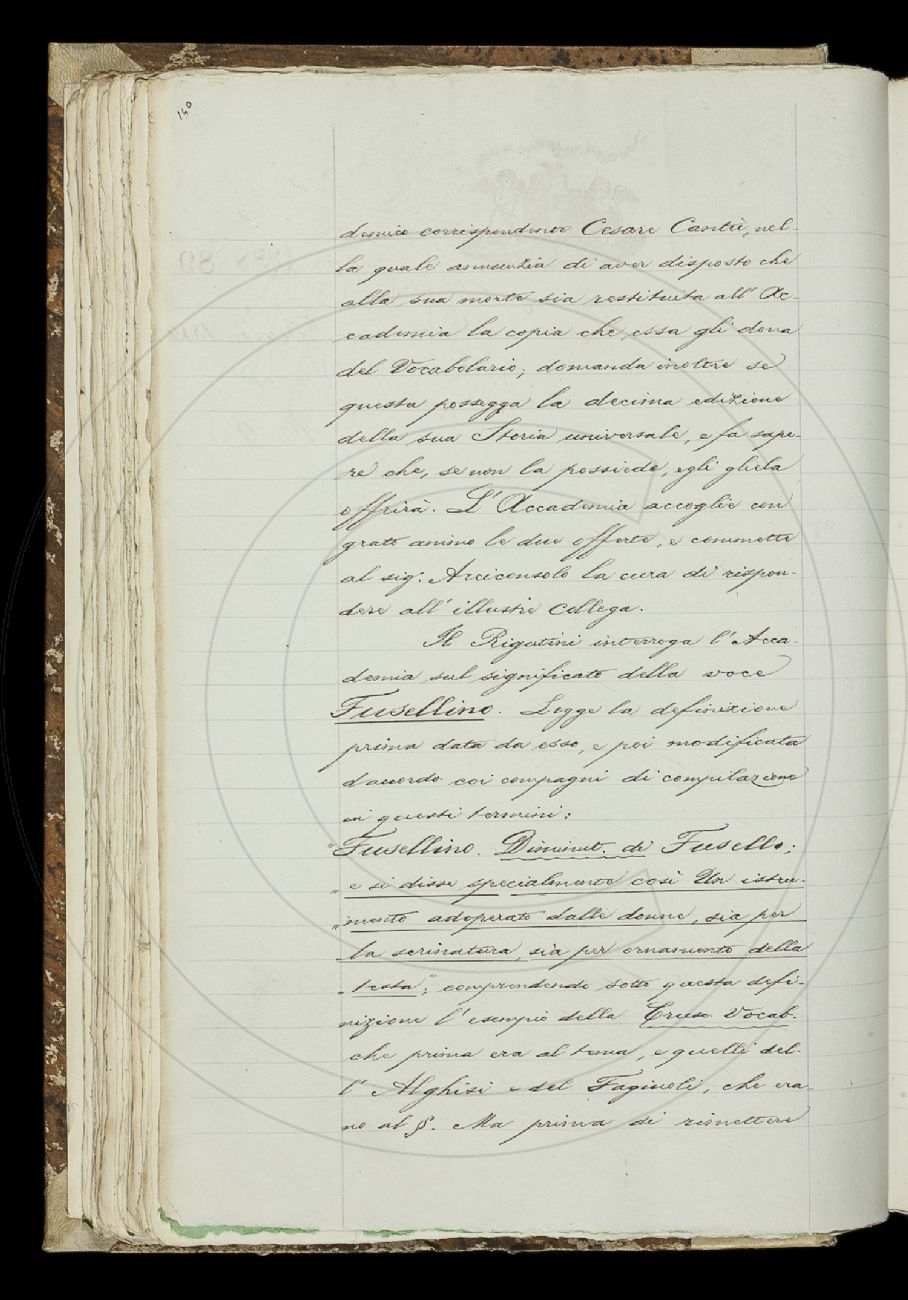 140
demico corrispondente Cesare Cantù, nel-
la quale annunzia di aver disposto che
alla sua morte sia restituita all' Ac-
cademia la copia che essa gli dona
del Vocabolario; domanda inoltre se
questa possegga la decima edizione
della sua Storia universale, e fa sape-
re che, se non la possiede, egli gliela
offrirà. L' Accademia accoglie con
grato animo le due offerte, e commette
al sig.r Arciconsolo la cura di rispon-
dere all' illustre Collega.
Il Rigutini interroga l' Acca-
demia sul significato della voce
Fusellino. Legge la definizione
prima data da esso, e poi modificata
d'accordo coi compagni di compilazione
in questi termini:
"Fusellino. Diminut. di Fusello;
„e si disse specialmente così Un istru-
„mento adoperato dalle donne, sia per
„la scrinatura, sia per ornamento della
„testa"; comprendendo sotto questa defi-
nizione l' esempio della Crusc. Vocab.
che prima era al tema, e quelli del-
l' Alghisi e del Fagiuoli, che era-
no al §. Ma prima di rimettere